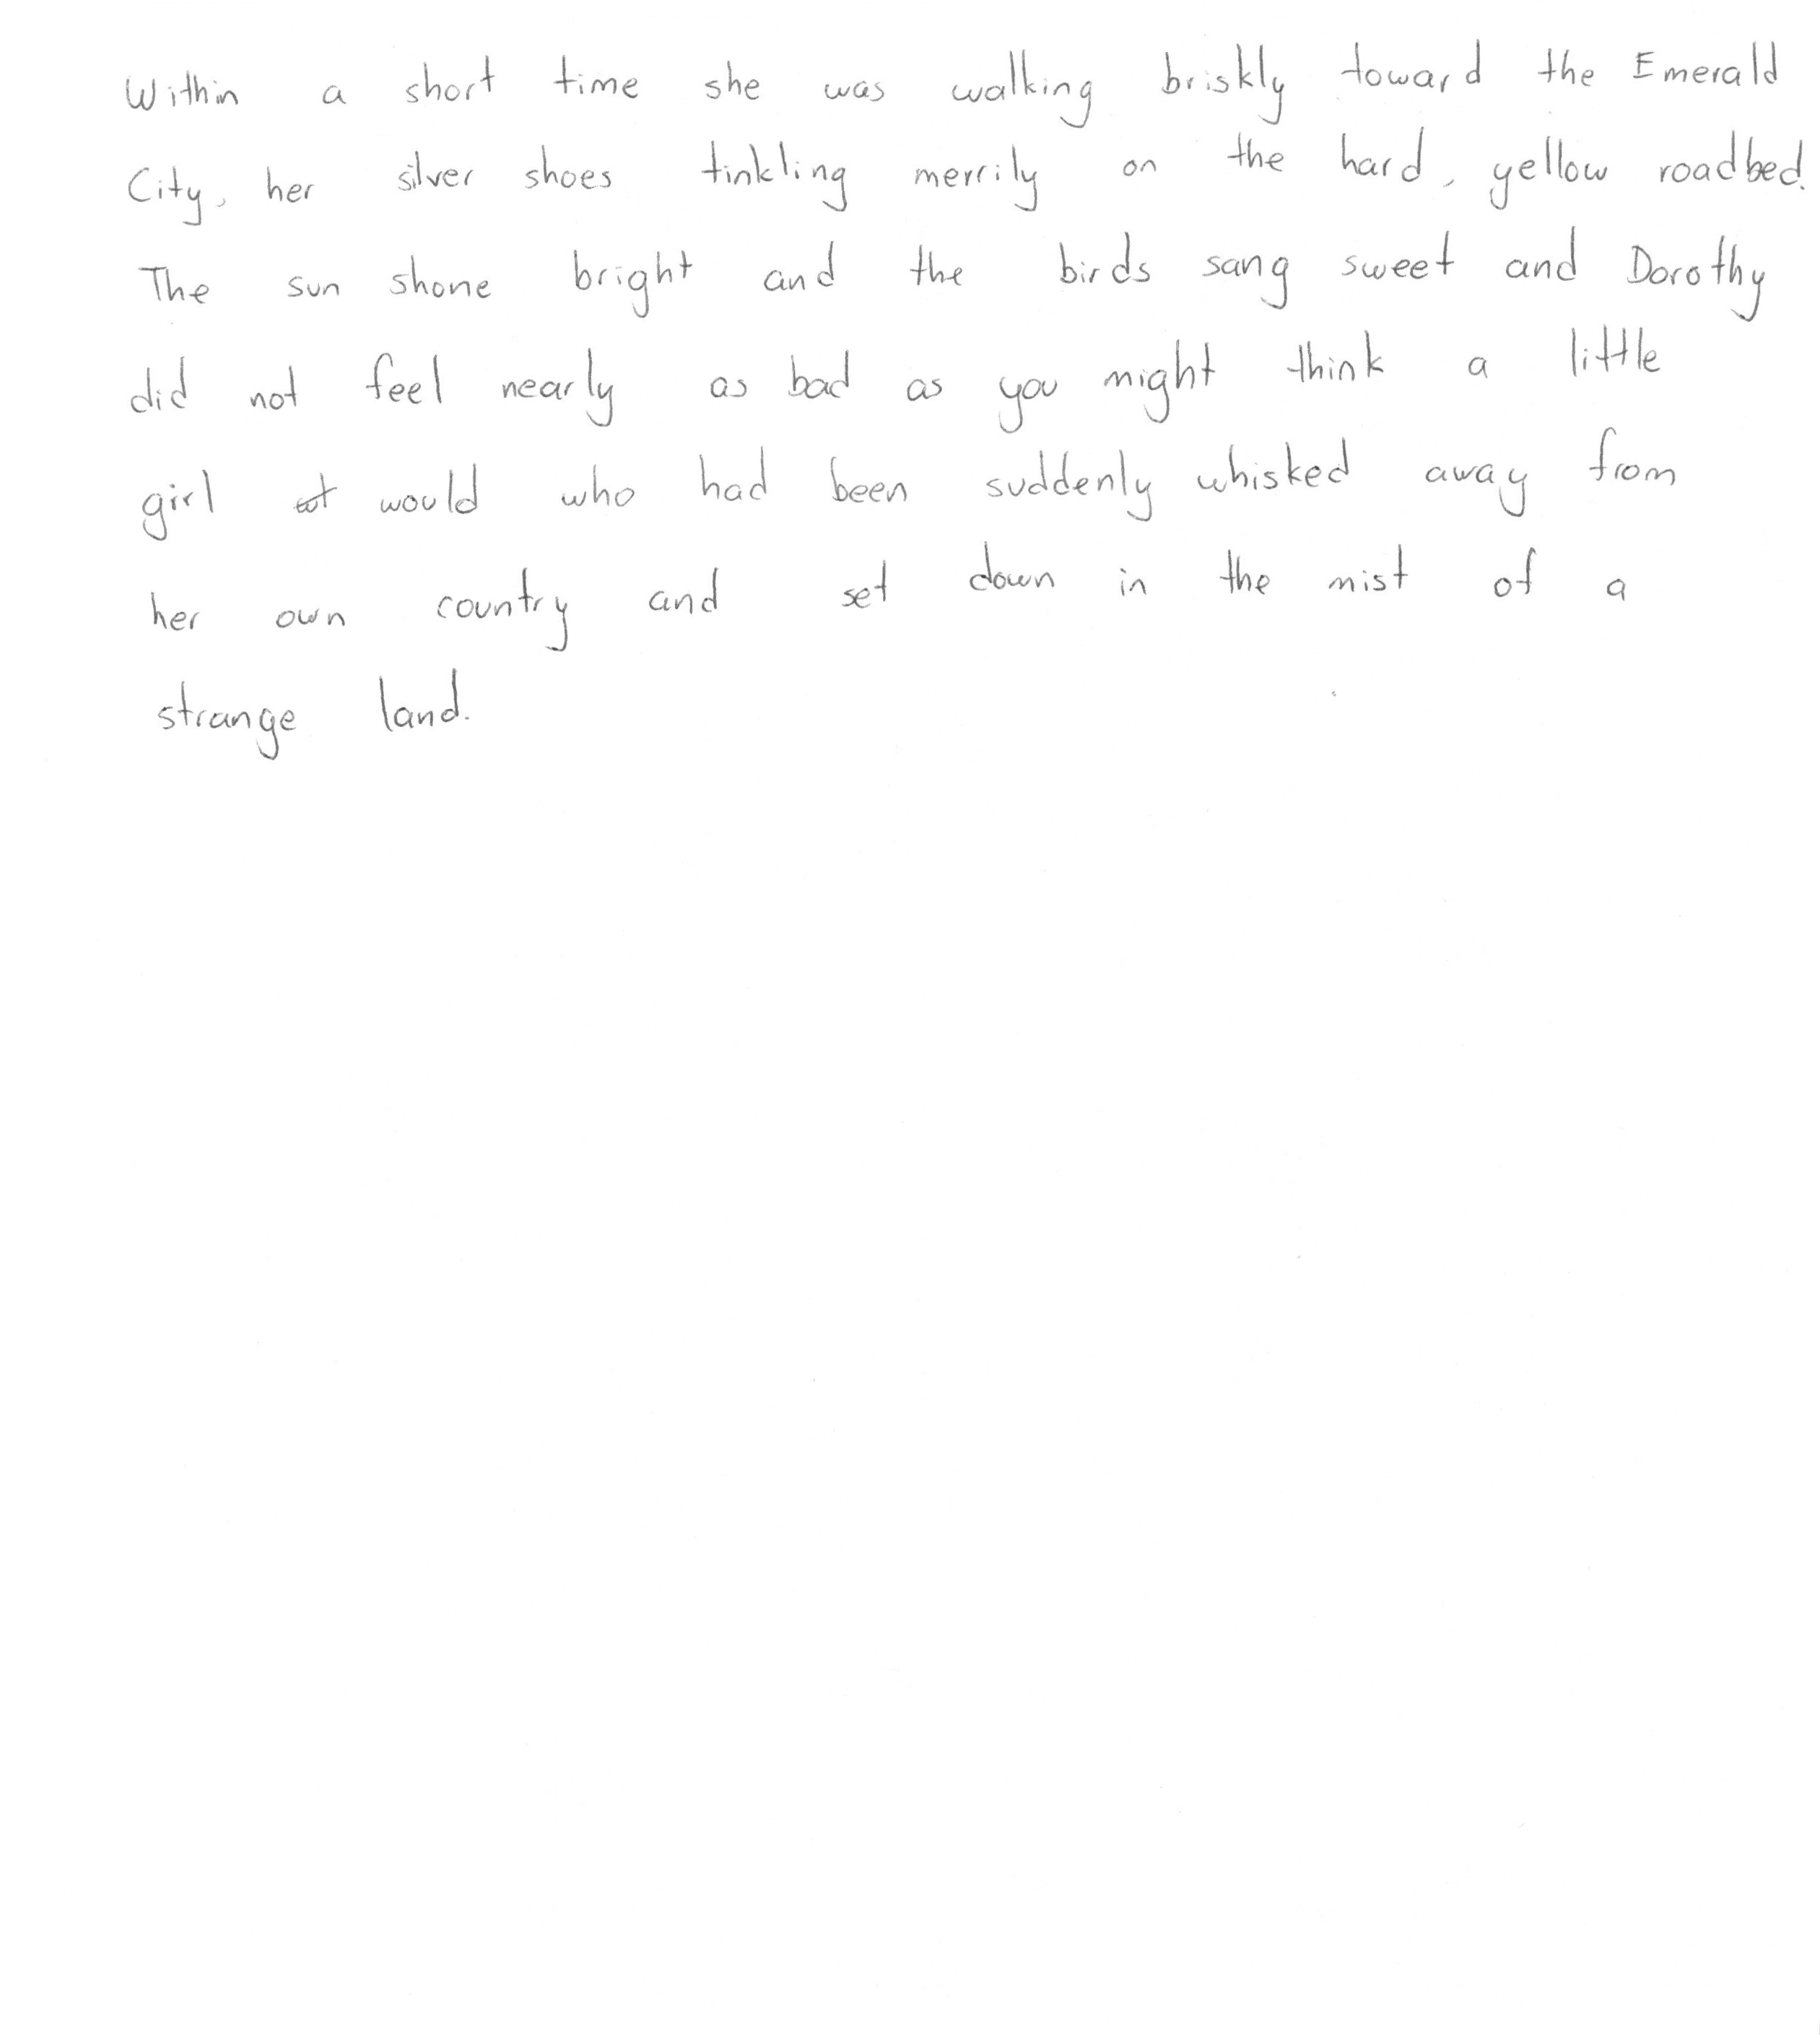 Within a short time she was walking briskly toward the Emerald
City, her silver shoes tinkling merrily on the hard, yellow roadbed.
The sun shone bright and the birds sang sweet and Dorothy
did not feel nearly as bad as you might think a little
girl would who had been suddenly whisked away from
her own country and set down in the mist of a
strange land.